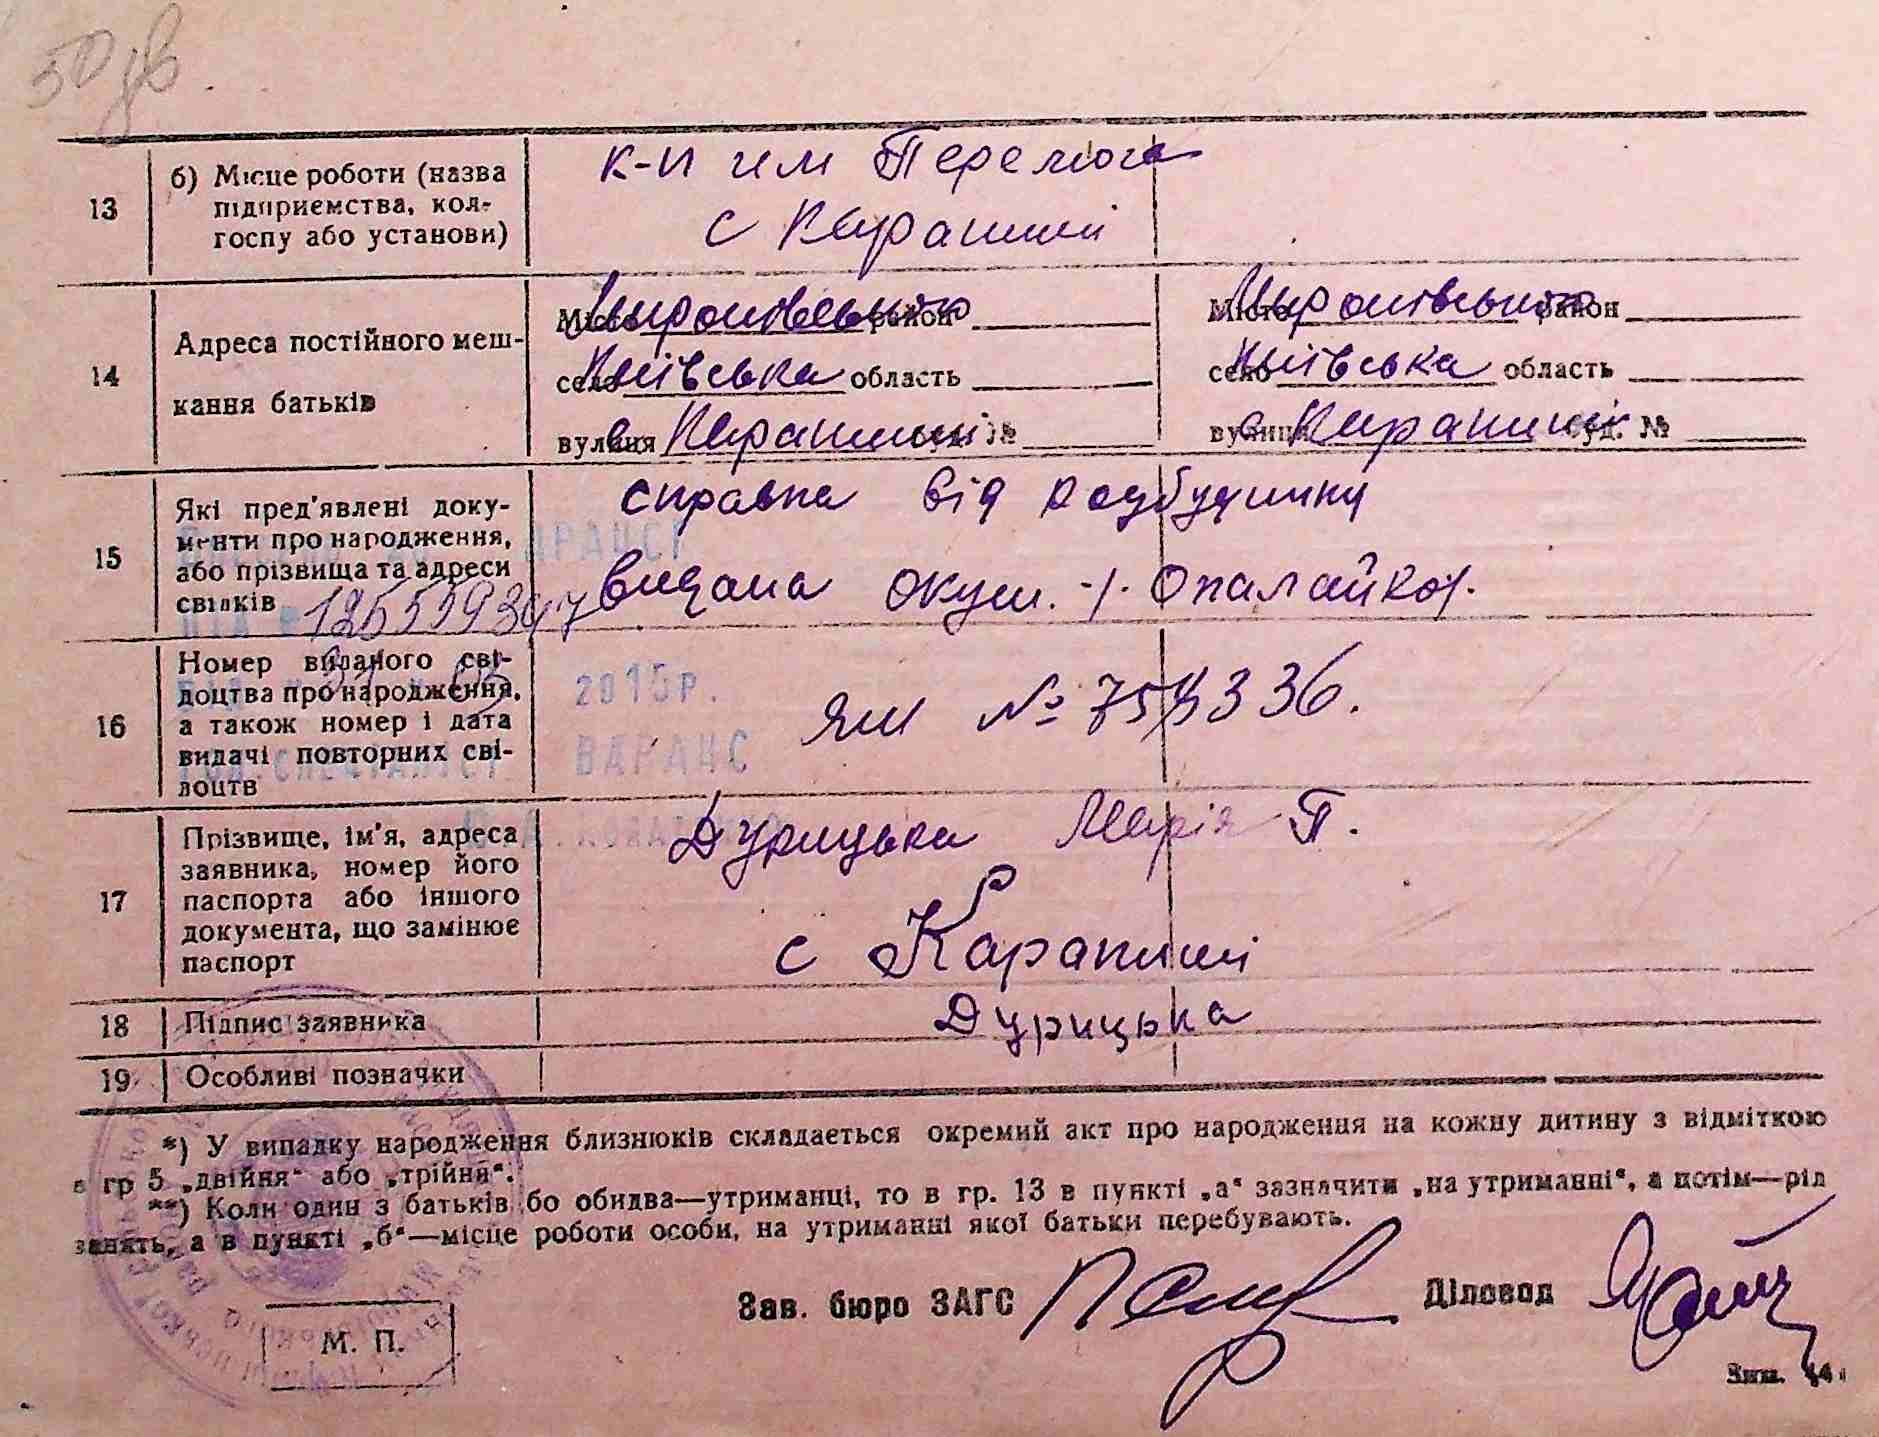 13
б) Місце роботи (назва
підприємства, кол-
госпу або установи)
к-п им Перемога
с Карапиші
14
Адреса постійного меш-
кання батьків
Місто Миронівський район
село Київська область
вулиця с Карапиші буд. №
Місто Миронівський район
село Київська область
вулиця с Карапиші буд. №
15
Які пред'явлені доку-
менти про народження,
або прізвища та адреси
свідків
справка від родбудинку
видана акуш.
ДРАЦСГ
1255593947
16
Номер виданого сві-
доцтва про народження,
а також номер і дата
видачі повторних сві-
доцтв
31 03 2015р.
ВДРАЦС
ЯШ №
17
Прізвище, ім'я, адреса
заявника, номер його
паспорта або іншого
документа, що замінює
паспорт
Дурицька Марія П.
с Карапиші
18
Підпис заявника
Дурицька
19
Особливі позначки
*) У випадку народження близнюків складається окремий акт про народження на кожну дитину з відміткою
в гр 5 „двійня“ або „трійня“.
**) Коли один з батьків бо обидва—утриманці, то в гр. 13 в пункті „а“ зазначити „на утриманні“, а потім—рід
занять, а в пункті „б“—місце роботи особи, на утриманні якої батьки перебувають.
Зав. бюро ЗАГС
Діловод
М. П.